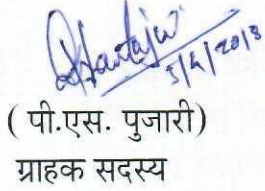 5/4/2013
( पी.एस. पुजारी)
ग्राहक सदस्य